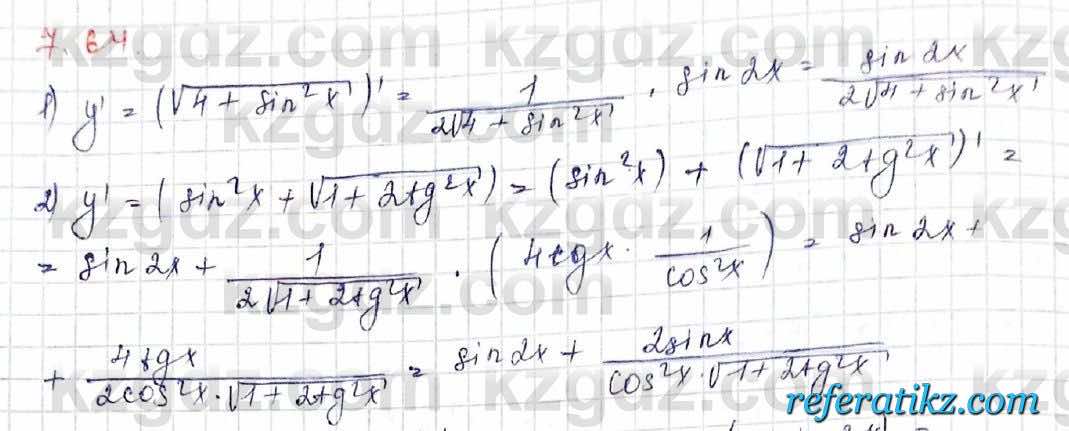 7.64.
1) y' = (√(4 + sin²x))' = 1/(2√(4 + sin²x)) · sin 2x = sin 2x/(2√(4 + sin²x))
2) y' = (sin²x + √(1 + 2tg²x)) = (sin²x) + (√(1 + 2tg²x))' =
= sin 2x + 1/(2√(1 + 2tg²x)) · (4tgx · 1/cos²x) = sin 2x +
+ 4tgx/(2cos²x · √(1 + 2tg²x)) = sin 2x + 2sinx/(cos²x · √(1 + 2tg²x))
kzgdz.com kzgdz.com
kzgdz.com kzgdz.com
kzgdz.com kzgdz.com
kzgdz.com kzgdz.com
referatikz.com